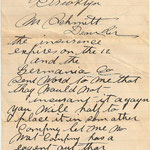 Brooklyn
Mr. Schmitt
Dear Sir
the insurance
expires on the 12
and the
Germania Co
sent Word to One that
they Would Not
insurans it agayn
you Will haf to
place it in som other
Company let me No
What Company has a